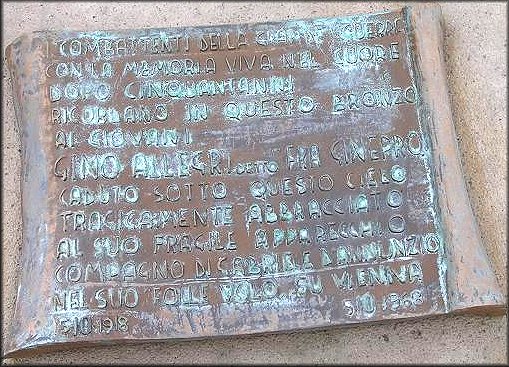 I COMBATTENTI DELLA GRANDE GUERRA
CON LA MEMORIA VIVA NEL CUORE
DOPO CINQUANTANNI
RICORDANO IN QUESTO BRONZO
AI GIOVANI
GINO ALLEGRI DETTO FRA GINEPRO
CADUTO SOTTO QUESTO CIELO
TRAGICAMENTE ABBRACCIATO
AL SUO FRAGILE APPARECCHIO
COMPAGNO DI GABRIELE D'ANNUNZIO
NEL SUO FOLLE VOLO SU VIENNA
5.10.1918 5.10.1968